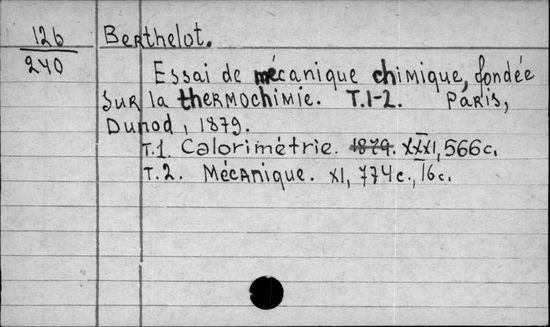 126
240
Berthelot.
Essai de mécanique chimique, fondée
sur la thermochimie. T.1-2. Paris,
Dunod, 1879.
T.1. Calorimétrie. 1879. XXXI, 566c.
T.2. Mécanique. XI, 774c., 16c.